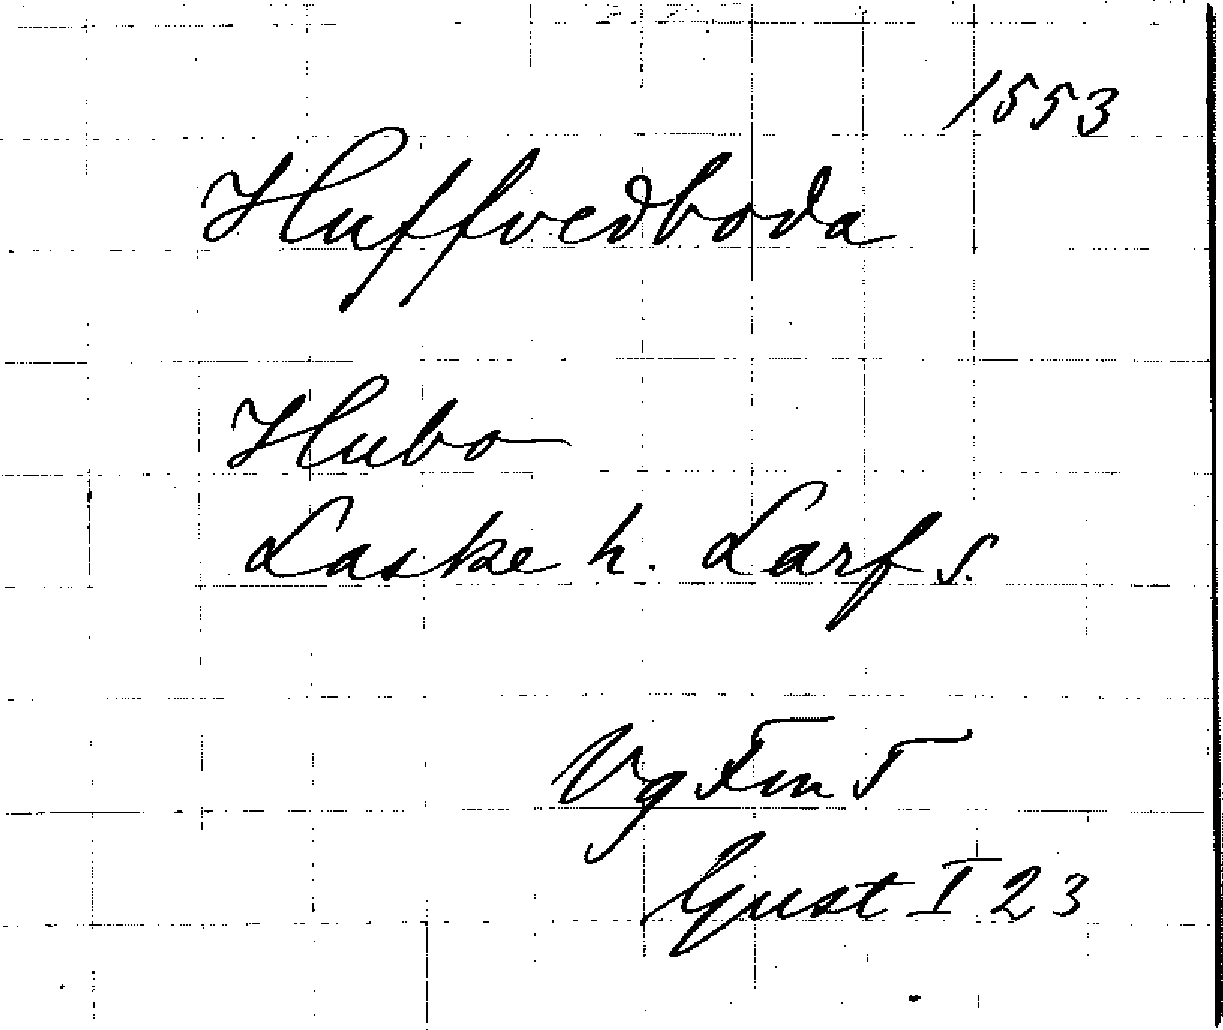 1553
Huffvedboda
Hubo
Laske h. Larf s.
Vg Fm T
Gust I 23